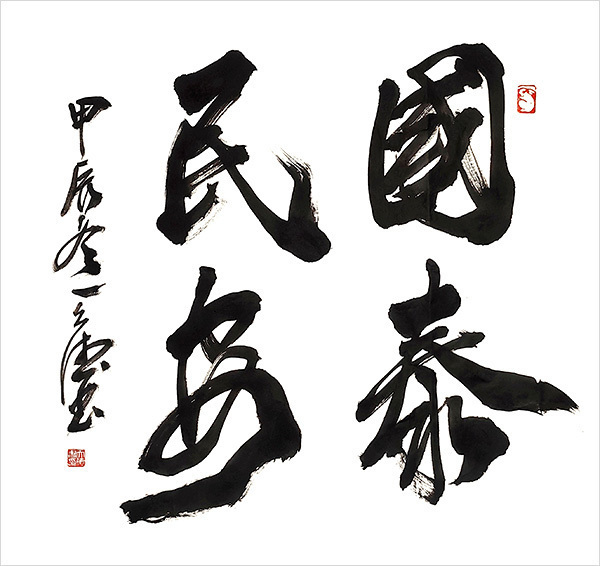 國泰
民安
甲辰冬一德書